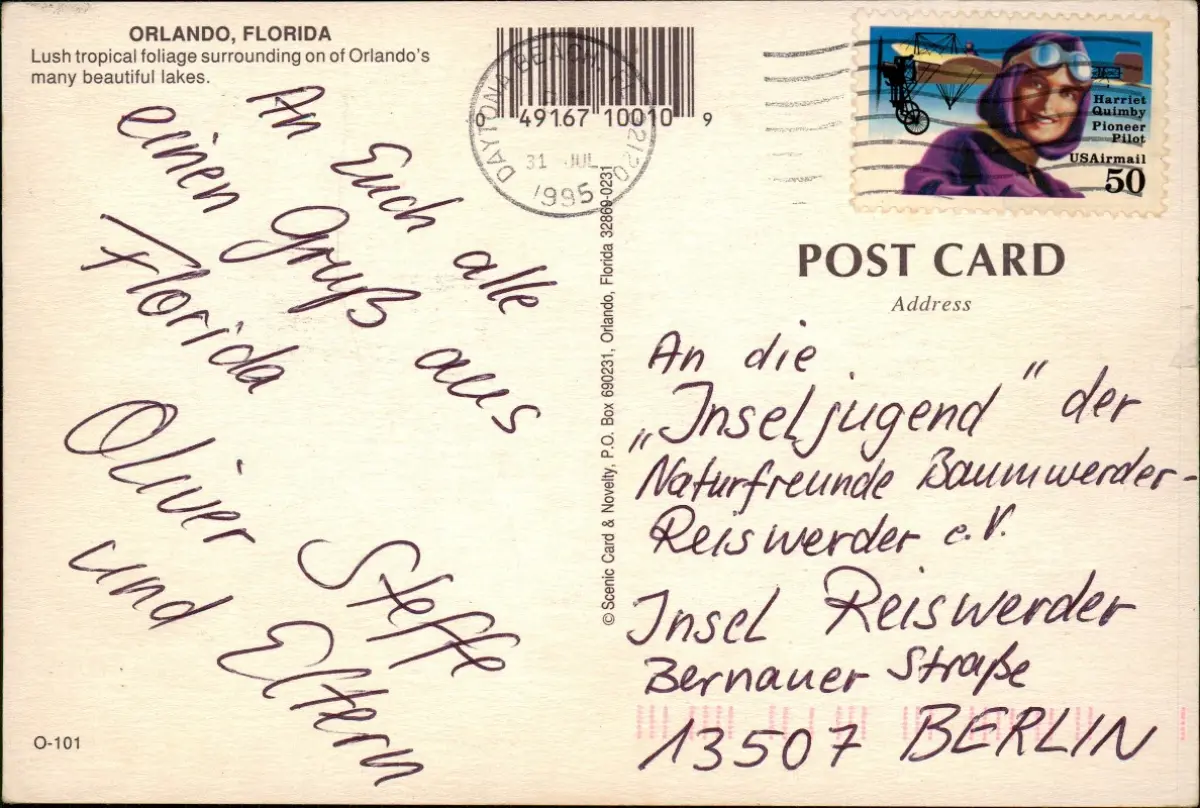 ORLANDO, FLORIDA
Lush tropical foliage surrounding on of Orlando's
many beautiful lakes.
An Euch alle
einen Gruß aus
Florida
Oliver Steffe
und Eltern
O-101
0 49167 10010 9
DAYTONA BEACH, FL
31 JUL
1995
© Scenic Card & Novelty, P.O. Box 690231, Orlando, Florida 32869-0231
Harriet
Quimby
Pioneer
Pilot
USAirmail
50
POST CARD
Address
An die
„Inseljugend" der
Naturfreunde Baumwerder-
Reiswerder e.V.
Insel Reiswerder
Bernauer Straße
13507 BERLIN